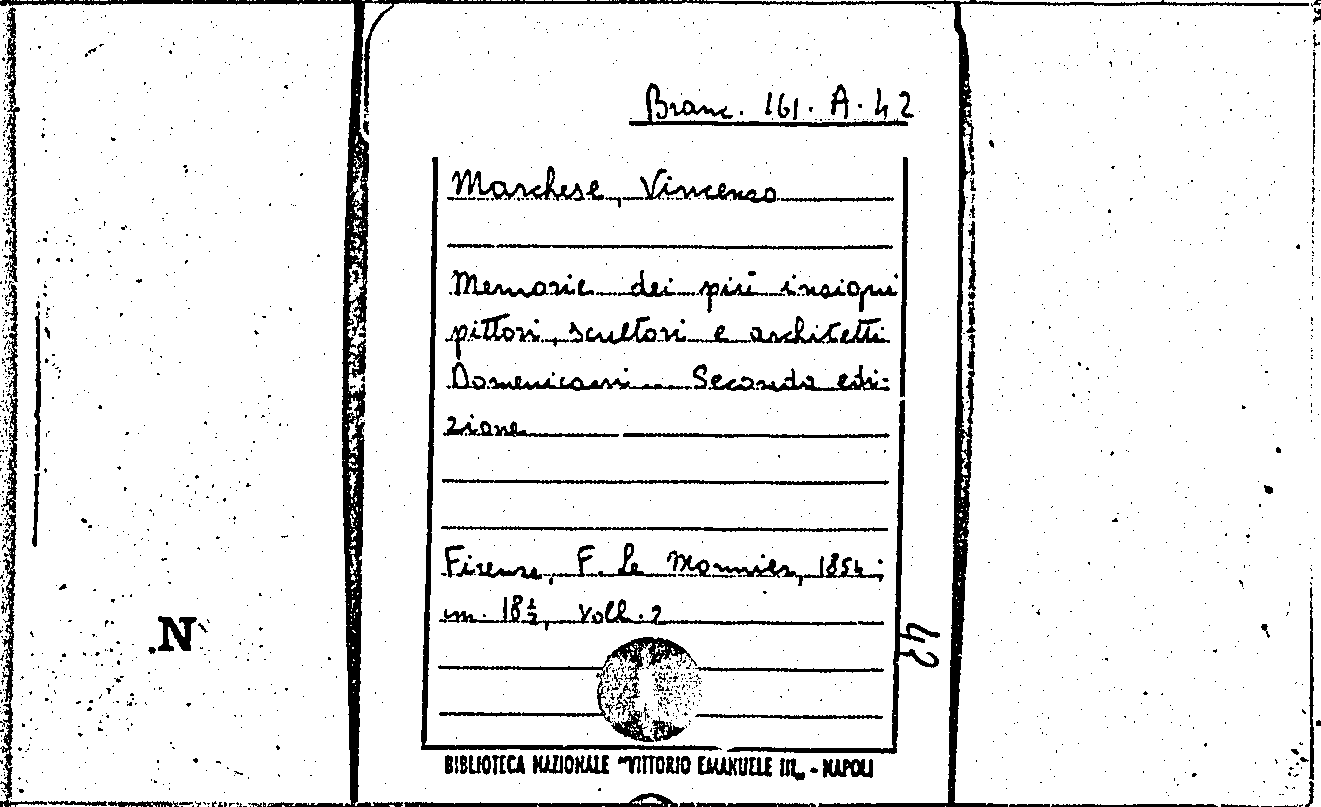 Branc. 161. A. 42
Marchese, Vincenzo
Memorie dei più insigni
pittori, scultori e architetti
Domenicani Seconda edi=
zione
Firenze, F. Le Monnier, 1854;
in. 18½, voll. 2
42
.N
BIBLIOTECA NAZIONALE "VITTORIO EMANUELE III„ - NAPOLI